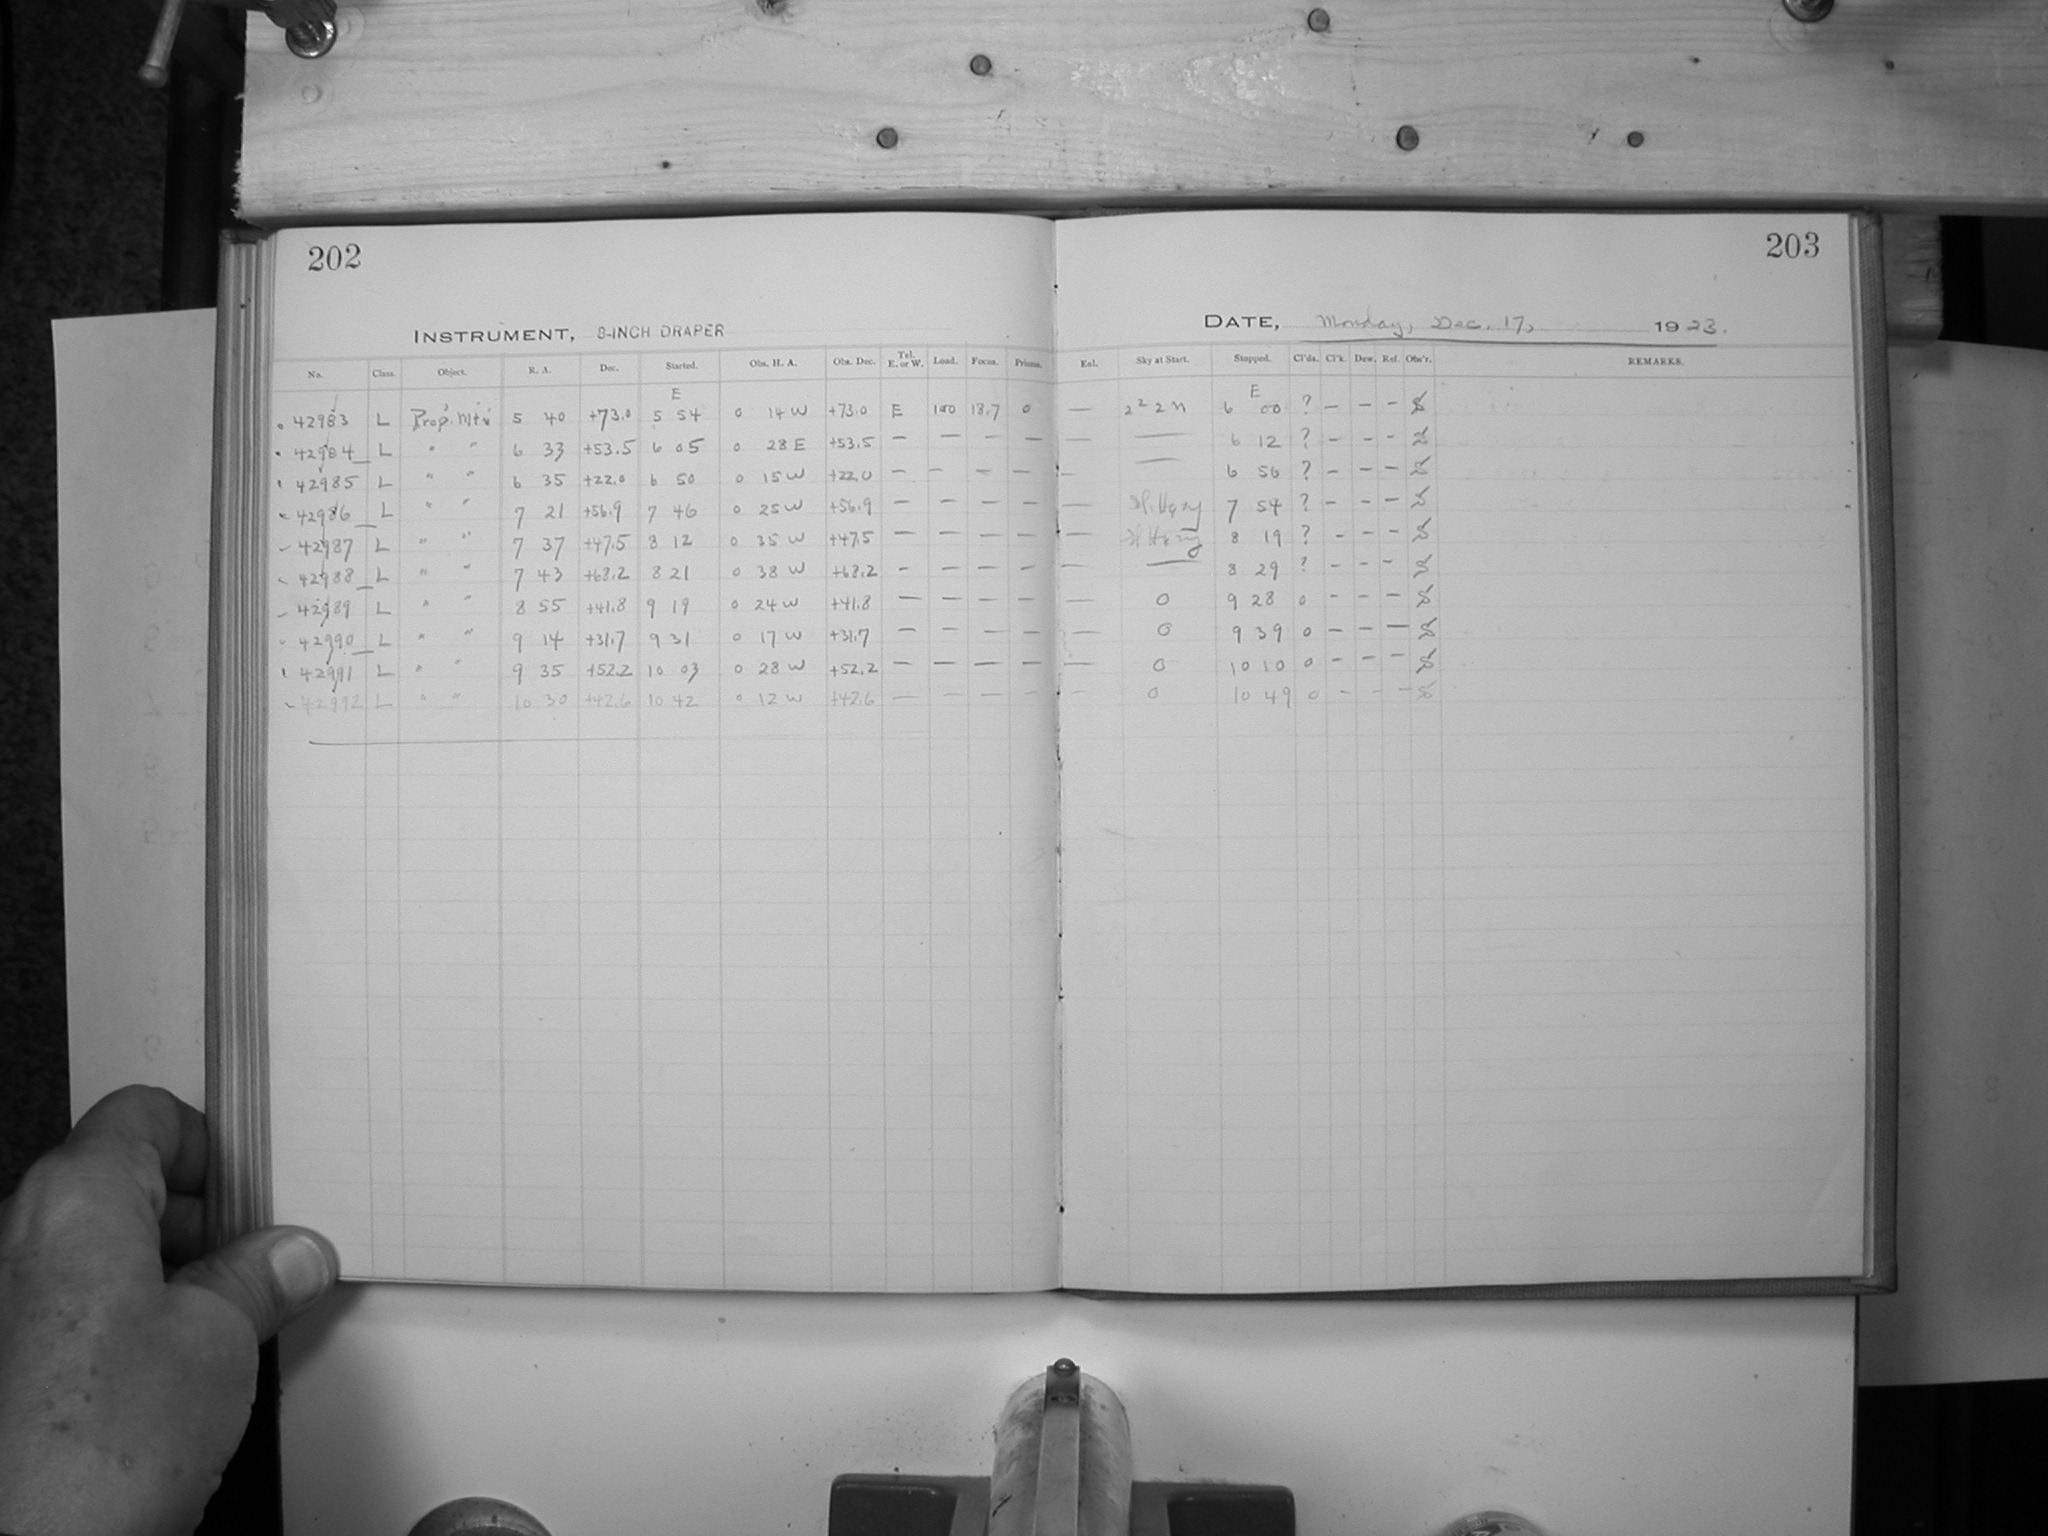 202
203
INSTRUMENT, 8-INCH DRAPER
DATE, Monday, Dec. 17, 1923.
No. Class. Object. R. A. Dec. Started. Obs. H. A. Obs. Dec. Tel. E. or W. Load. Focus. Prisms. Eal. Sky at Start. Stopped. Cl'ds. Cl'k. Dew. Ref. Obs'r. REMARKS.
E E
42983 L Prop. Mtn 5 40 +73.0 5 54 0 14 W +73.0 E 100 13.7 0 — 6 00 ? — — —
42984 L " " 6 33 +53.5 6 05 0 28 E +53.5 — — — — — — 6 12 ? — — —
42985 L " " 6 35 +22.0 6 50 0 15 W +22.0 — — — — — — 6 56 ? — — —
42986 L " " 7 21 +56.9 7 46 0 25 W +56.9 — — — — — Hazy 7 54 ? — — —
42987 L " " 7 37 +47.5 8 12 0 35 W +47.5 — — — — — Hazy 8 19 ? — — —
42988 L " " 7 43 +68.2 8 21 0 38 W +68.2 — — — — — — 8 29 ? — — —
42989 L " " 8 55 +41.8 9 19 0 24 W +41.8 — — — — — 0 9 28 0 — — —
42990 L " " 9 14 +31.7 9 31 0 17 W +31.7 — — — — — 0 9 39 0 — — —
42991 L " " 9 35 +52.2 10 03 0 28 W +52.2 — — — — — 0 10 10 0 — — —
42992 L " " 10 30 +42.6 10 42 0 12 W +42.6 — — — — — 0 10 49 0 — — —